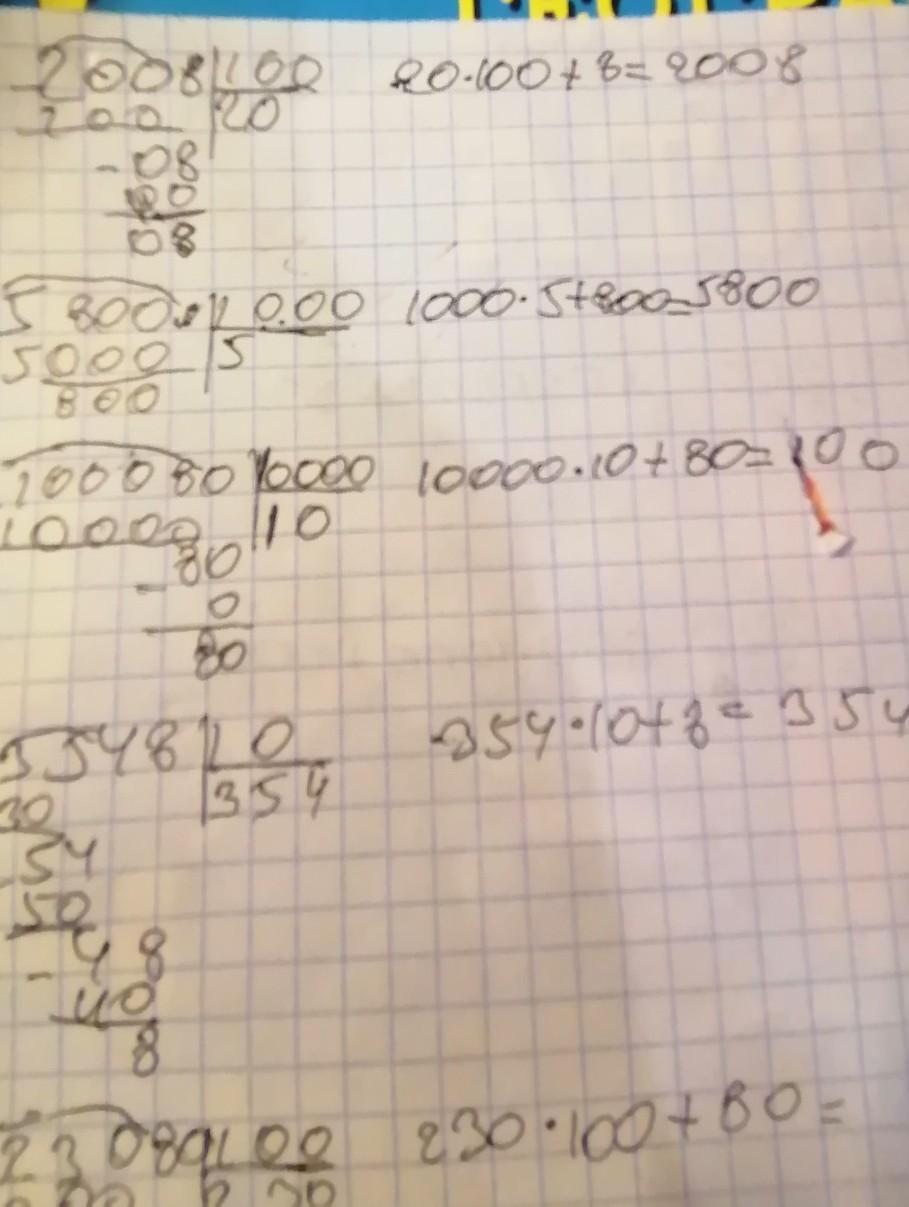 2008 100 20·100+8=2008
200 20
-08
00
08
5800 1000 1000·5+800=5800
5000 5
800
100080 10000 10000·10+80=100
10000 10
80
- 0
80
3548 10 354·10+8=354
30 354
54
50
-48
40
8
23080 100 230·100+80=
230